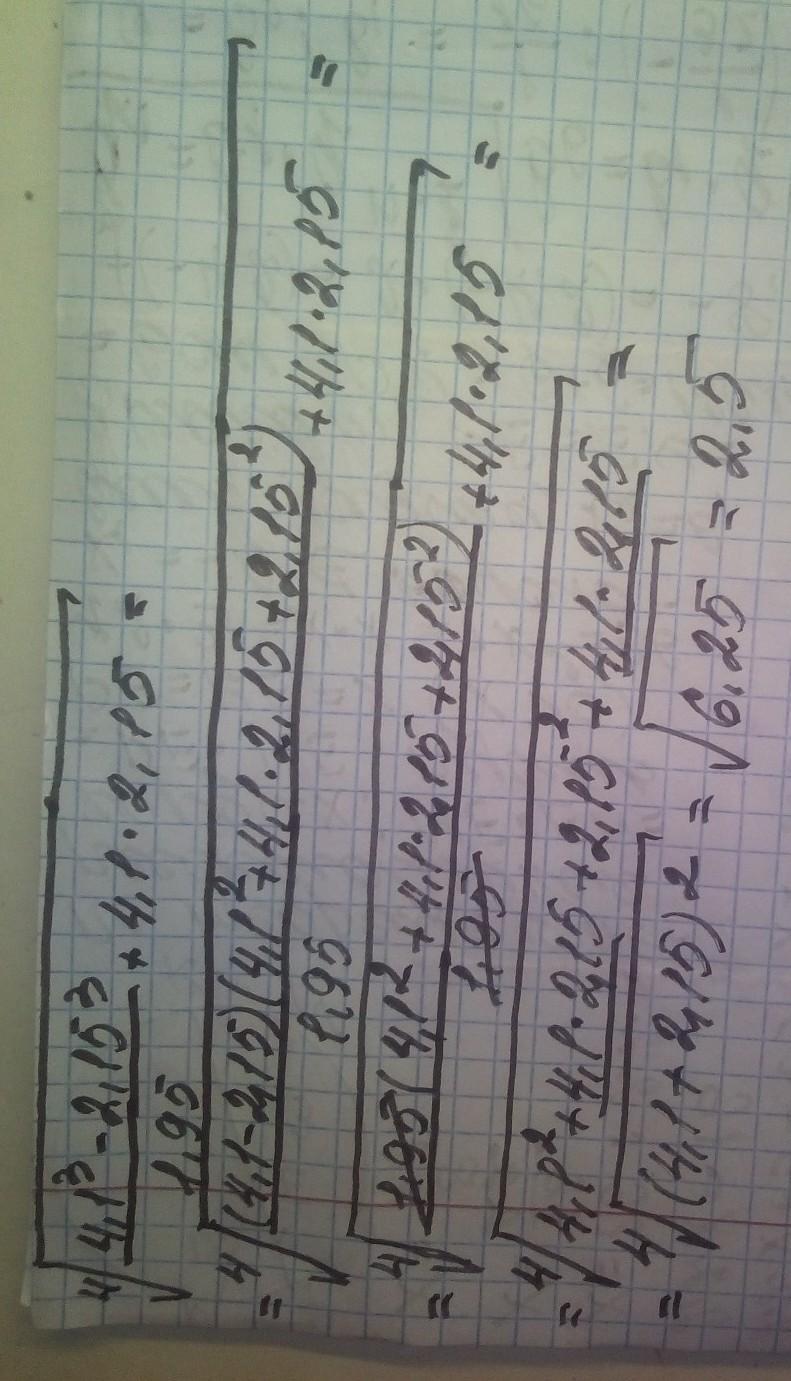 ⁴√((4,1³ - 2,15³)/1,95 + 4,1 · 2,15) =
= ⁴√(((4,1 - 2,15)(4,1² + 4,1 · 2,15 + 2,15²))/1,95 + 4,1 · 2,15) =
= ⁴√((1,95(4,1² + 4,1 · 2,15 + 2,15²))/1,95 + 4,1 · 2,15) =
= ⁴√(4,1² + 4,1 · 2,15 + 2,15² + 4,1 · 2,15) =
= ⁴√((4,1 + 2,15)²) = √(6,25) = 2,5